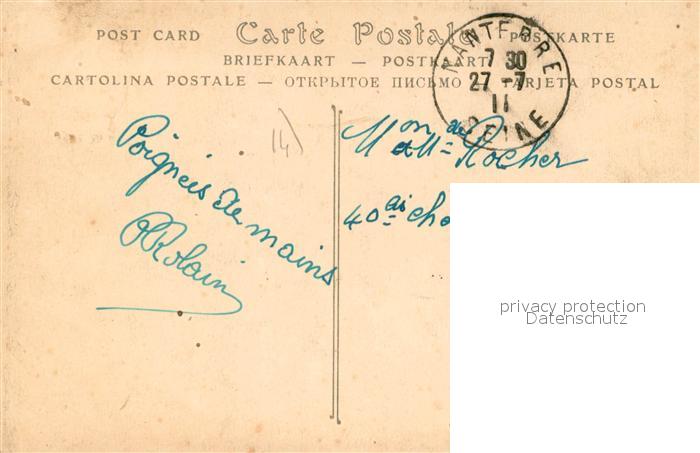 POST CARD Carte Postale POSTKARTE
BRIEFKAART — POSTKAART
CARTOLINA POSTALE — ОТКРЫТОЕ ПИСЬМО — TARJETA POSTAL
NANTERRE
7 30
27 -7
11
SEINE
14
Poignées de mains
Mon de
et Mme Rocher
40
privacy protection
Datenschutz